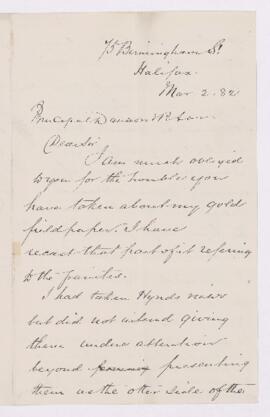 75 Birmingham St
Halifax.
Mar 2. 82
Principal Dawson
Dear Sir
I am much obliged
to you for the trouble you
have taken about my gold
field paper. I have
recast that part of it refering
to the families.
I had taken Hynds view
but did not intend giving
them undue attention
beyond presenting
them as the other side of the